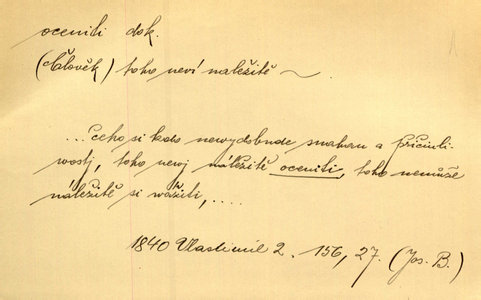 oceniti dok.
(Člověk) toho neví náležitě ~ .
...čeho si kdo newydobude snahau a přičinli-
wostj, toho newj náležitě oceniti, toho nemůže
náležitě si wážiti, ....
1840 Vlastimil 2. 156, 27. (Jos. B.)